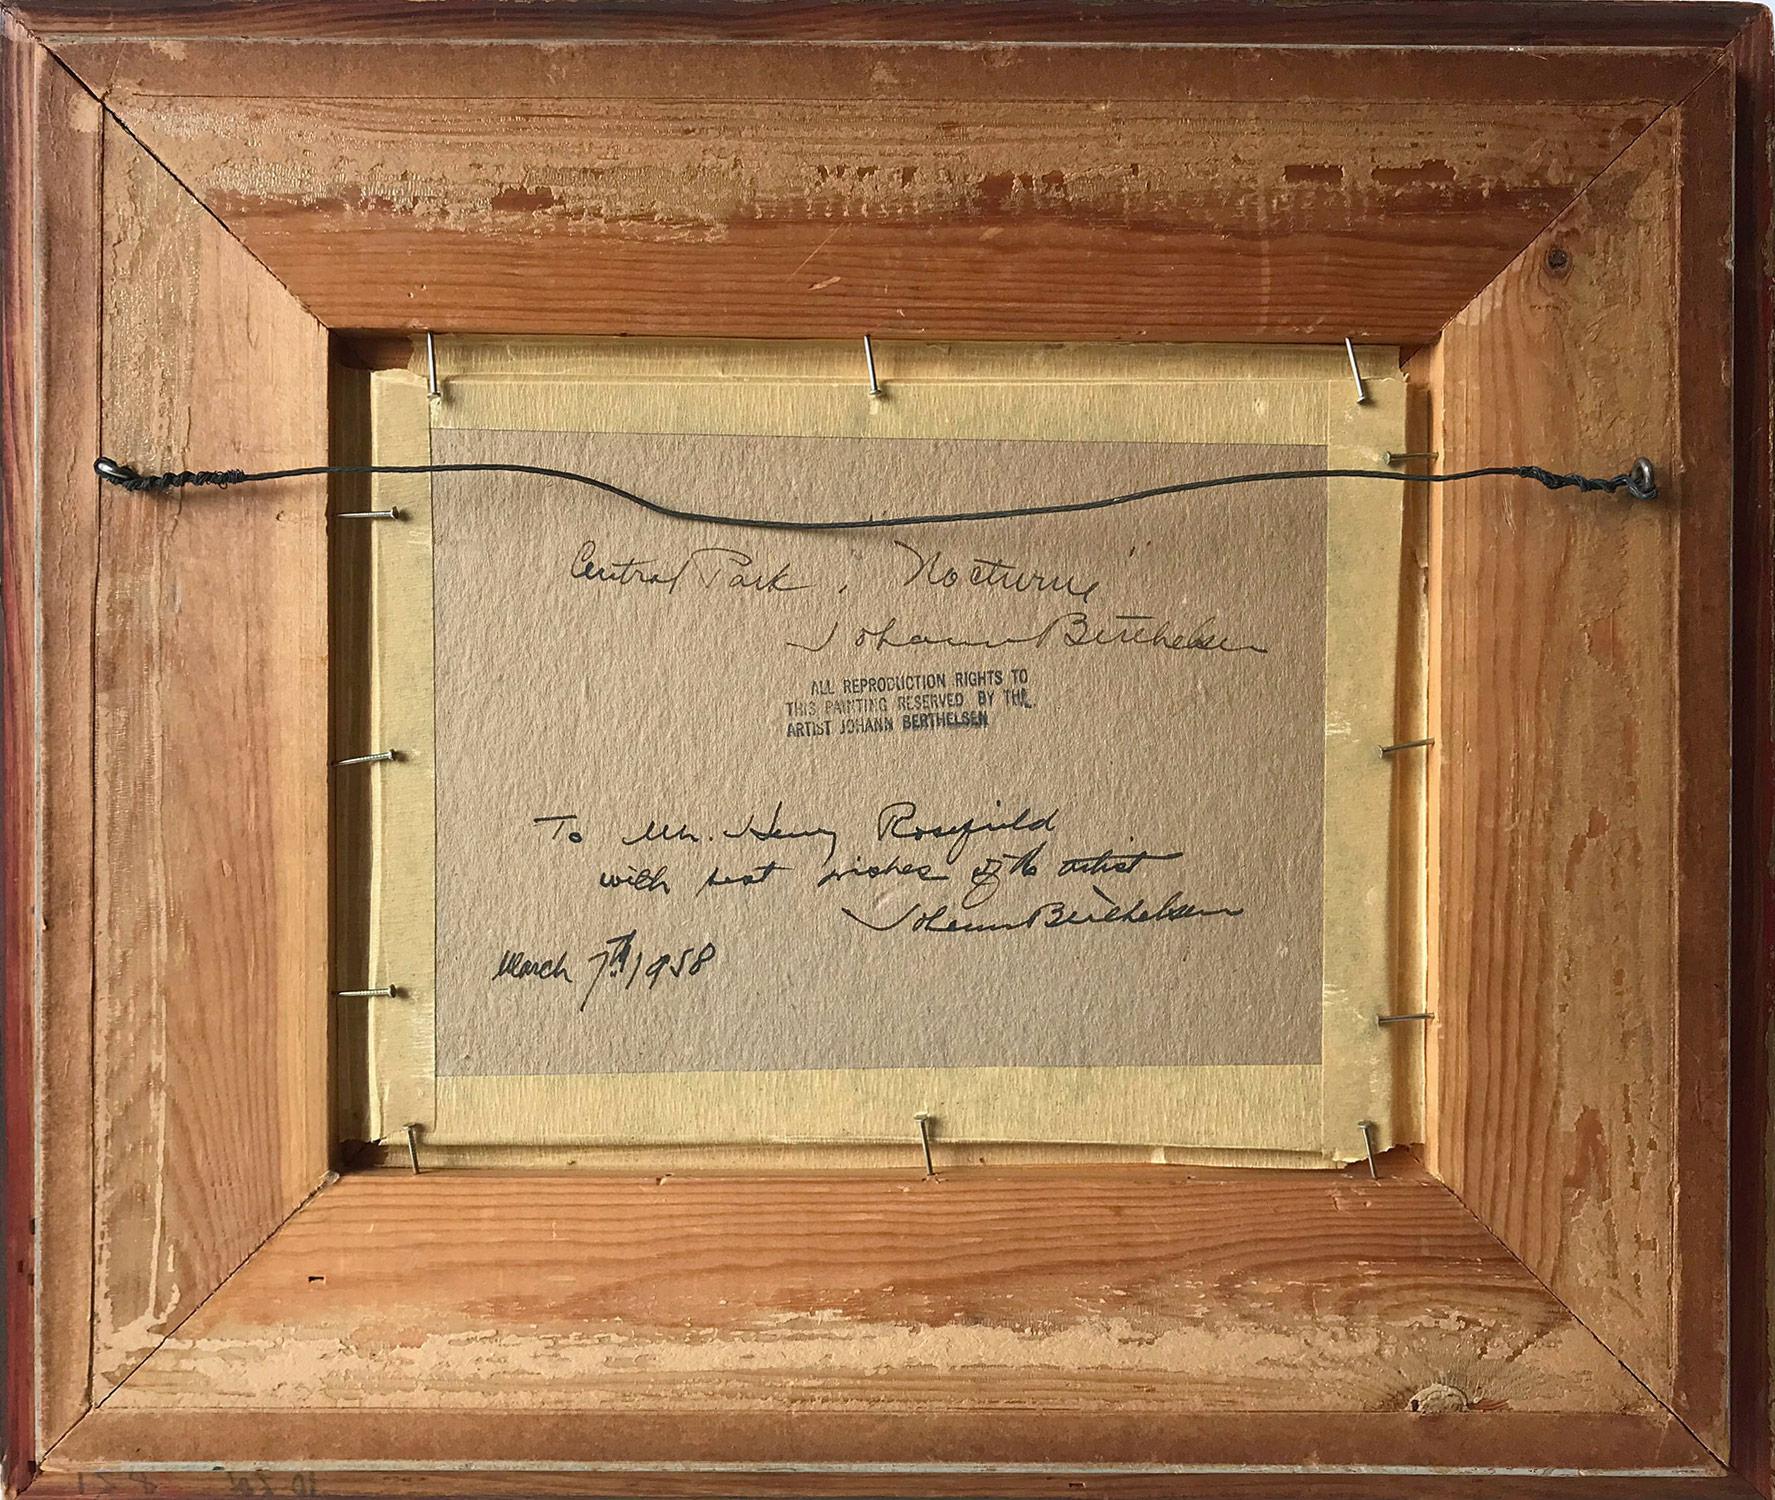 Central Park, Nocturne
Johann Berthelsen
ALL REPRODUCTION RIGHTS TO
THIS PAINTING RESERVED BY THE
ARTIST JOHANN BERTHELSEN
To Mr. Henry Rosefield
with best wishes of the artist
Johann Berthelsen
March 7th, 1958